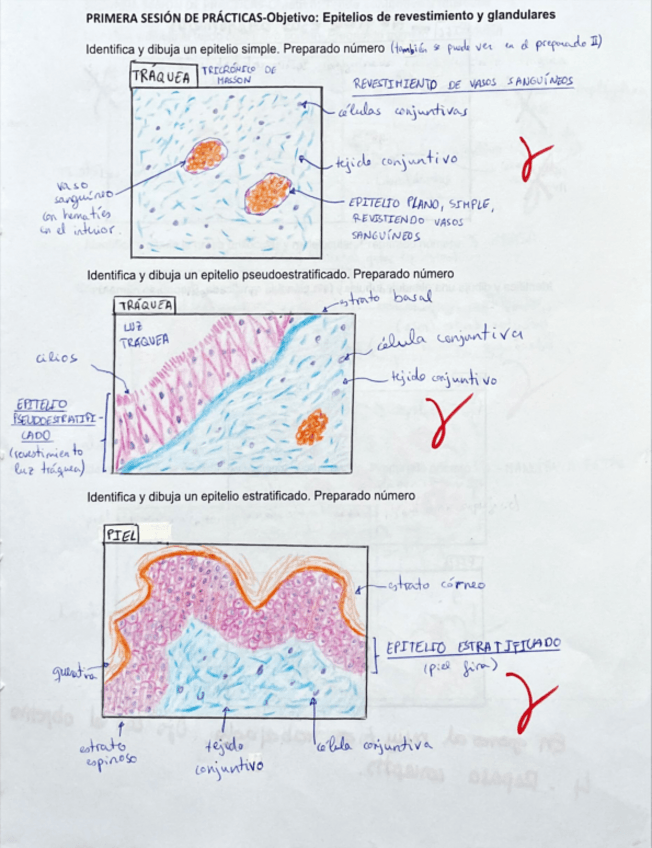 PRIMERA SESIÓN DE PRÁCTICAS-Objetivo: Epitelios de revestimiento y glandulares
Identifica y dibuja un epitelio simple. Preparado número (también se puede ver en el preparado II)
TRÁQUEA
TRICRÓMICO DE
MASSON
REVESTIMIENTO DE VASOS SANGUÍNEOS
células conjuntivas
tejido conjuntivo
vaso
sanguíneo
con hematíes
en el interior.
EPITELIO PLANO, SIMPLE,
REVISTIENDO VASOS
SANGUÍNEOS
Identifica y dibuja un epitelio pseudoestratificado. Preparado número
TRÁQUEA
estrato basal
LUZ
TRÁQUEA
célula conjuntiva
cilios
tejido conjuntivo
EPITELIO
PSEUDOESTRATIFI-
CADO
(revestimiento
luz tráquea)
Identifica y dibuja un epitelio estratificado. Preparado número
PIEL
estrato córneo
EPITELIO ESTRATIFICADO
(piel fina)
estrato
espinoso
tejido
conjuntivo
célula conjuntiva